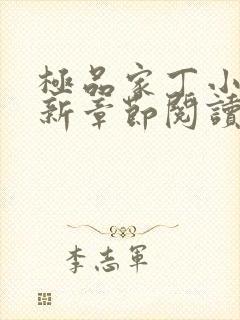 極品家丁小
新章節閱讀
李志軍